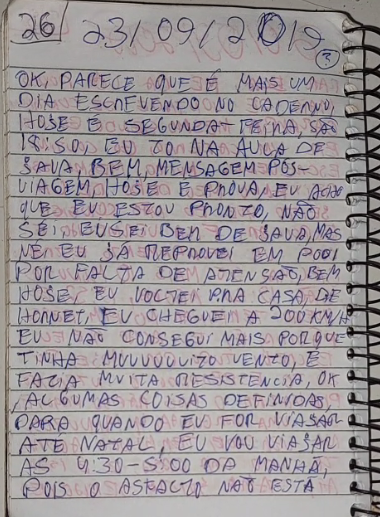 26 23/09/2019
?
OK, PARECE QUE É MAIS UM
DIA ESCREVENDO NO CADERNO,
HOJE É SEGUNDA-FEIRA, SÃO
18:50, EU TO NA AULA DE
JAVA, BEM, MENSAGEM PÓS-
VIAGEM, HOJE É PROVA, EU ACHO
QUE EU ESTOU PRONTO, NÃO
SEI, EU SEI BEM DE JAVA, MAS
EU JÁ REPROVEI EM POO1
POR FALTA DE ATENSÃO, BEM
HOJE, EU VOLTEI PRA CASA, DE
HORNET, EU CHEGUEI A 200KM/H
EU NÃO CONSEGUI MAIS PORQUE
TINHA MUUUUUITO VENTO, E
FAZIA MUITA RESISTENCIA, OK
ALGUMAS COISAS DEFINIDAS,
PARA QUANDO EU FOR VIAJAR
ATÉ NATAL, EU VOU VIAJAR
AS 4:30-5:00 DA MANHÃ,
POIS O ASFALTO NÃO ESTA